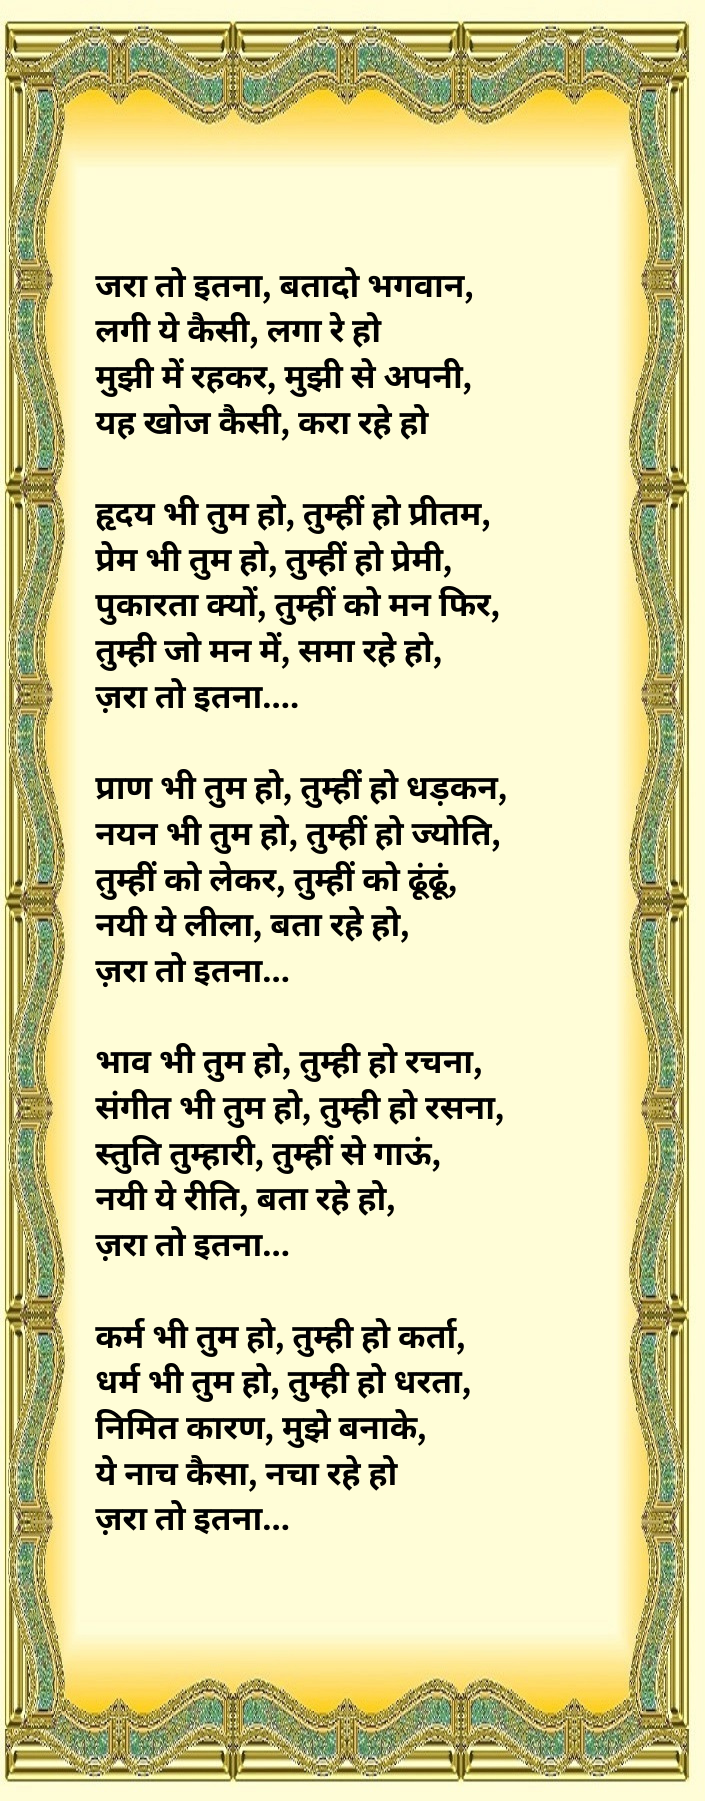 जरा तो इतना, बतादो भगवान,
लगी ये कैसी, लगा रे हो
मुझी में रहकर, मुझी से अपनी,
यह खोज कैसी, करा रहे हो
हृदय भी तुम हो, तुम्हीं हो प्रीतम,
प्रेम भी तुम हो, तुम्हीं हो प्रेमी,
पुकारता क्यों, तुम्हीं को मन फिर,
तुम्ही जो मन में, समा रहे हो,
ज़रा तो इतना....
प्राण भी तुम हो, तुम्हीं हो धड़कन,
नयन भी तुम हो, तुम्हीं हो ज्योति,
तुम्हीं को लेकर, तुम्हीं को ढूंढूं,
नयी ये लीला, बता रहे हो,
ज़रा तो इतना...
भाव भी तुम हो, तुम्ही हो रचना,
संगीत भी तुम हो, तुम्ही हो रसना,
स्तुति तुम्हारी, तुम्हीं से गाऊं,
नयी ये रीति, बता रहे हो,
ज़रा तो इतना...
कर्म भी तुम हो, तुम्ही हो कर्ता,
धर्म भी तुम हो, तुम्ही हो धरता,
निमित कारण, मुझे बनाके,
ये नाच कैसा, नचा रहे हो
ज़रा तो इतना...